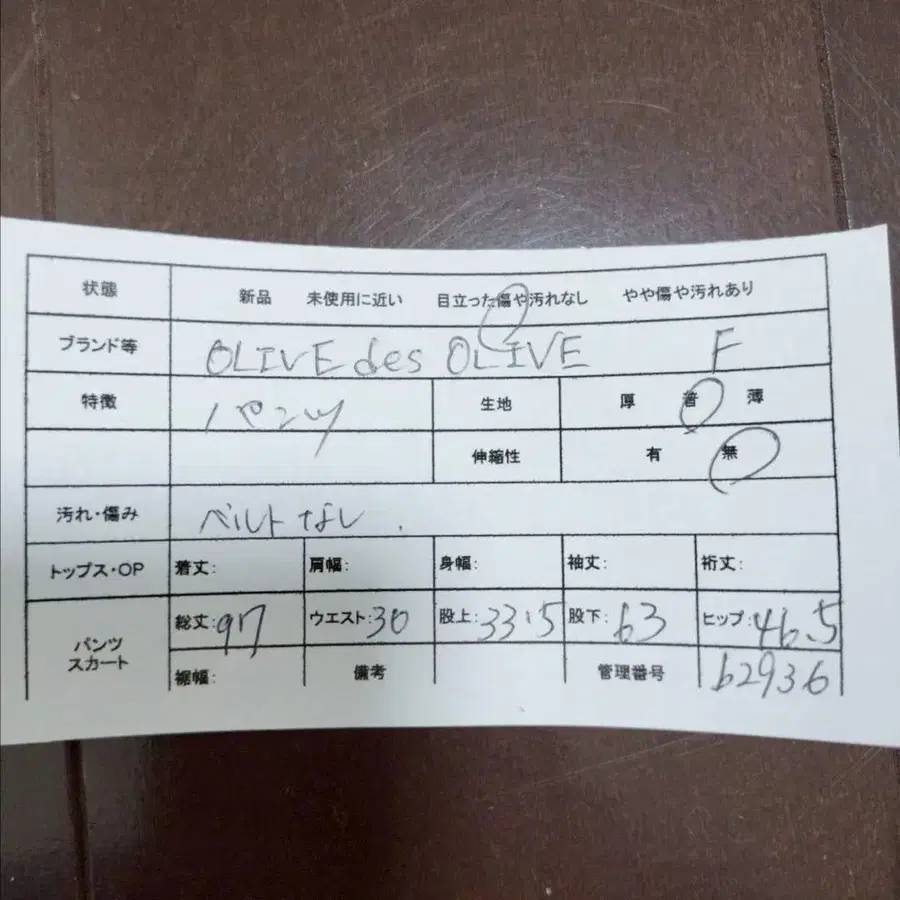 状態 新品 未使用に近い 目立った傷や汚れなし やや傷や汚れあり
ブランド等 OLIVE des OLIVE F
特徴 パンツ 生地 厚 普 薄
伸縮性 有 無
汚れ・傷み ベルトなし.
トップス・OP 着丈: 肩幅: 身幅: 袖丈: 裄丈:
パンツ スカート 総丈:97 ウエスト:30 股上:33.5 股下:63 ヒップ:46.5
裾幅: 備考 管理番号 62936